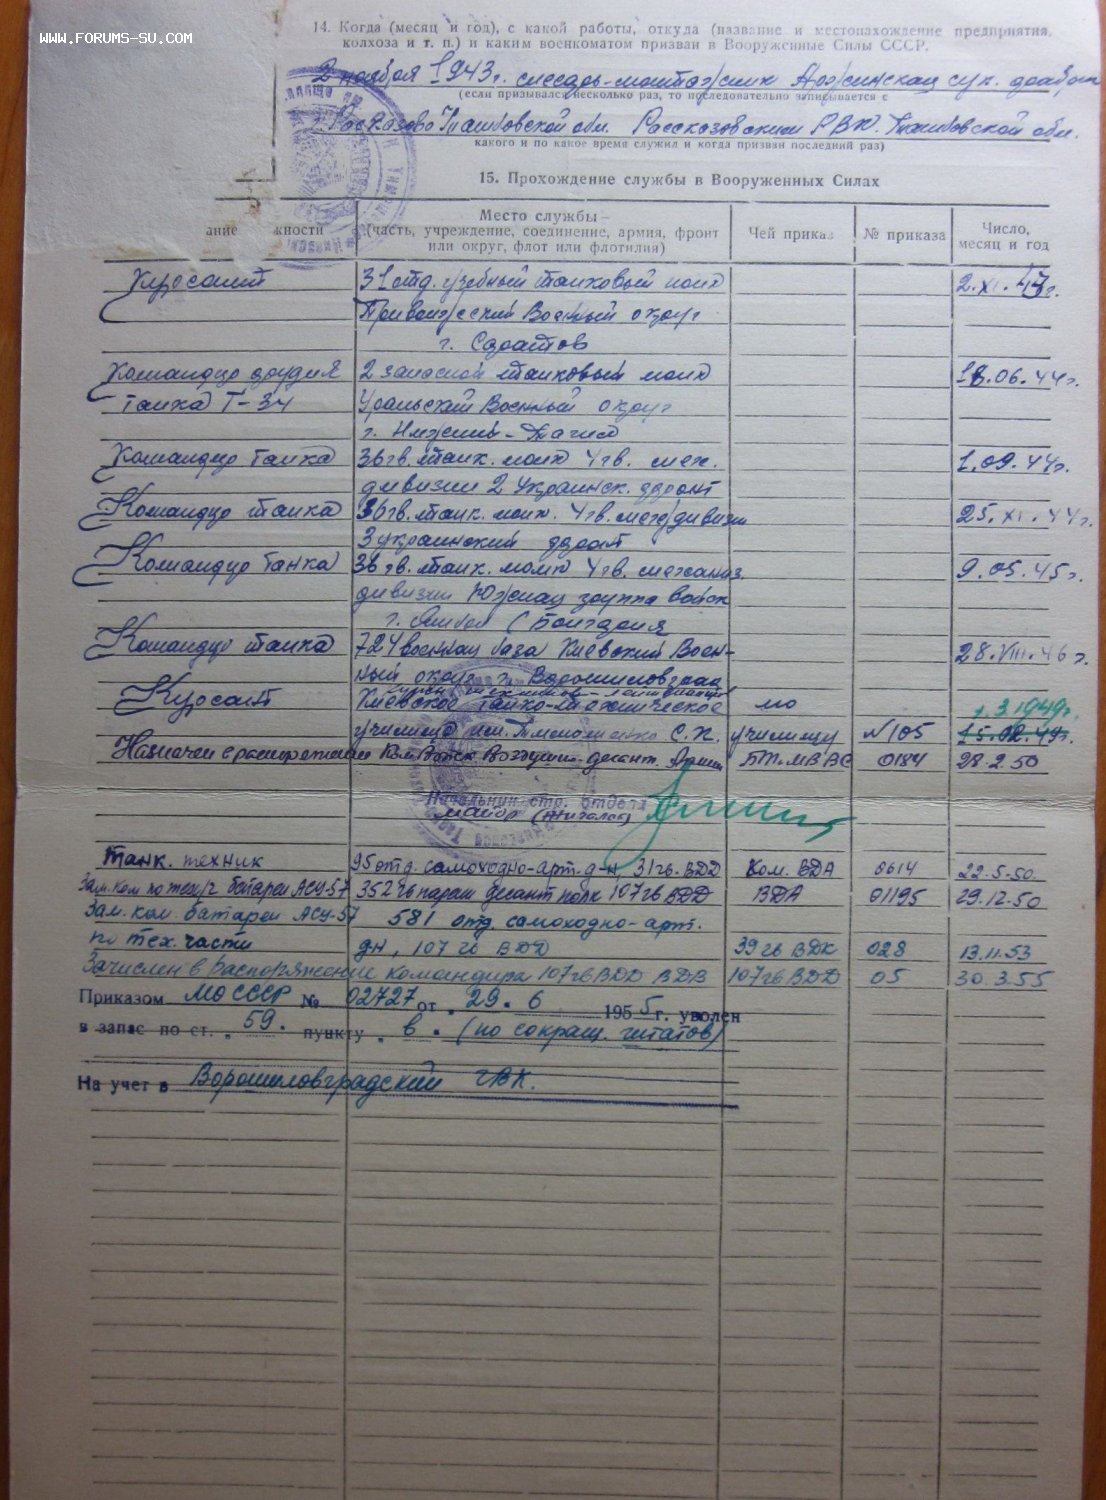 WWW.FORUMS-SU.COM
14. Когда (месяц и год), с какой работы, откуда (название и местонахождение предприятия,
колхоза и т. п.) и каким военкоматом призван в Вооруженные Силы СССР.
2 ноября 1943г. слесарь-монтажник Арженская сук. фабр
(если призывался несколько раз, то последовательно записывается с
г. Рассказово Тамбовской обл. Рассказовским РВК. Тамбовской обл.
какого и по какое время служил и когда призван последний раз)
15. Прохождение службы в Вооруженных Силах
ание жности
Место службы –
(часть, учреждение, соединение, армия, фронт
или округ, флот или флотилия)
Чей приказ
№ приказа
Число,
месяц и год
Курсант 31 отд. учебный танковый полк 2.XI.43г.
Приволжский Военный округ
г. Саратов
Командир орудия 2 запасной танковый полк 18.06.44г.
танка Т-34 Уральский Военный округ
г. Нижний-Тагил
Командир танка 36 гв. танк. полк 4 гв. мех. 1.09.44г.
дивизии 2 Украинск. фронт
Командир танка 36 гв. танк. полк. 4 гв. мех дивизии 25.XI.44г.
3 украинский фронт
Командир танка 36 гв. танк. полк 4 гв. механиз. 9.05.45г.
дивизии Южная группа войск
г. Ямбол (Болгария
Командир танка 724 военная база Киевский Воен- 28.VIII.46г.
ный округ г. Ворошиловград
Курсант Киевское танко-техническое по 1.3 1949г.
училище им. Тимошенко С.К. училищу №105 15.02.49г.
Назначен в распоряжение Ком. Войск Воздушн-десант. Армии БТ и МВ ВС 0184 28.2.50
Начальник стр. отдела
майор (Жигалов)
Танк. техник 95 отд. самоходно-арт. д-н, 31 гв. ВДД Ком. ВДА 0614 22.5.50.
Зам. ком по тех/ч батареи АСУ-57 352 гв парашдесант полк 107 гв ВДД ВДА 01195 29.12.50
Зам. ком. батареи АСУ-57 581 отд. самоходно-арт.
по тех. части дн, 107 гв ВДД 39 гв ВДК 028 13.11.53
Зачислен в распоряжение командира 107 гв ВДД ВДВ 107 гв ВДД 05 30.3.55
Приказом МО СССР № 02727 от 29. 6 1955г. уволен
в запас по ст. 59. пункту в. (по сокращ. штатов)
На учет в Ворошиловградский ГВК.